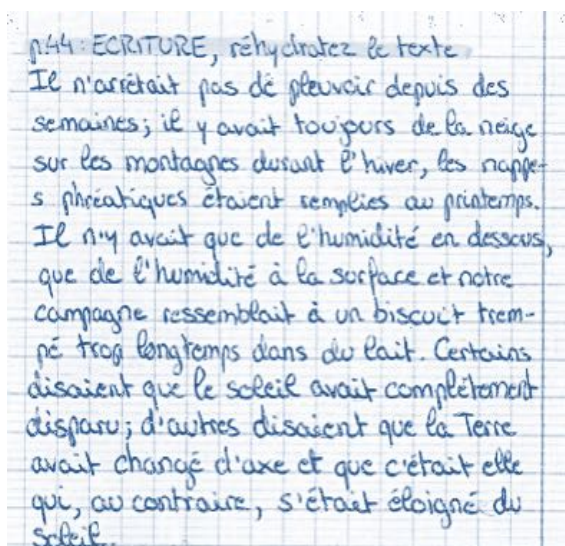 p.44 : ECRITURE, réhydratez le texte
Il n'arrêtait pas de pleuvoir depuis des
semaines; il y avait toujours de la neige
sur les montagnes durant l'hiver, les nappe-
s phréatiques étaient remplies au printemps.
Il n'y avait que de l'humidité en dessous,
que de l'humidité à la surface et notre
campagne ressemblait à un biscuit trem-
pé trop longtemps dans du lait. Certains
disaient que le soleil avait complètement
disparu; d'autres disaient que la Terre
avait changé d'axe et que c'était elle
qui, au contraire, s'était éloigné du
soleil.